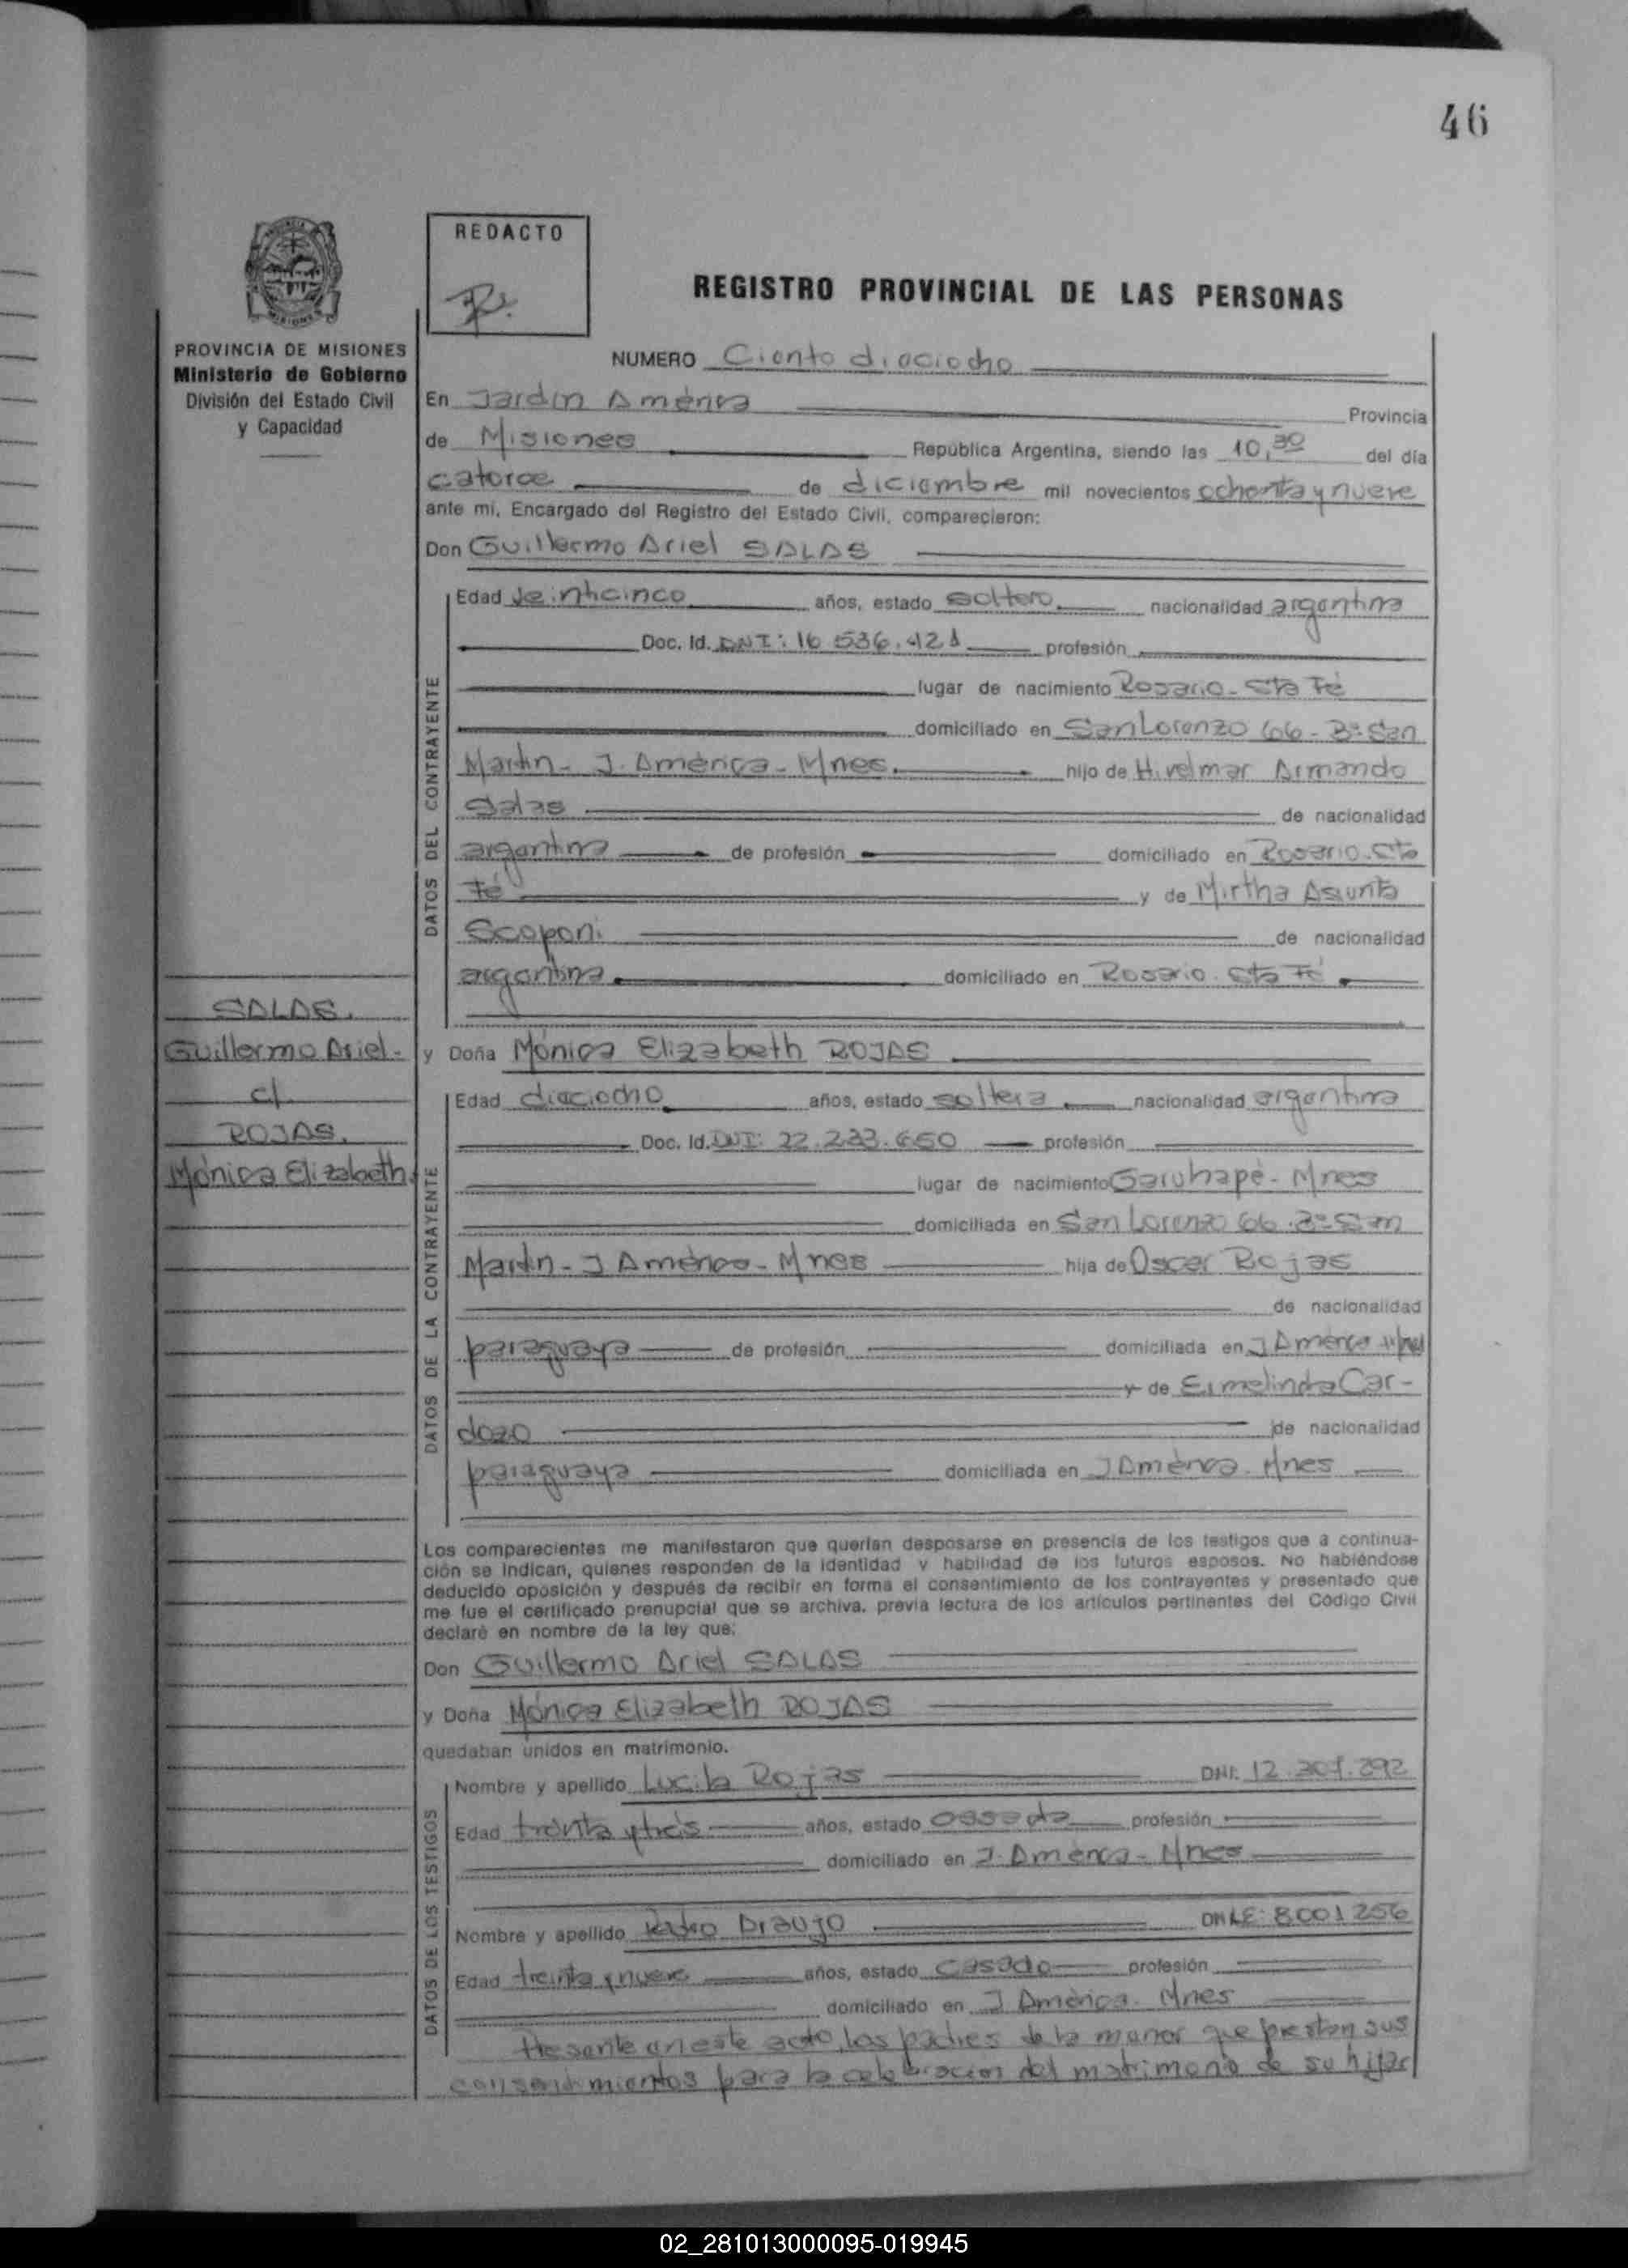 46
REDACTO
REGISTRO PROVINCIAL DE LAS PERSONAS
PROVINCIA DE MISIONES
Ministerio de Gobierno
División del Estado Civil
y Capacidad
NUMERO Ciento dieciocho
En Jardín América Provincia
de Misiones República Argentina, siendo las 10,30 del día
catorce de diciembre mil novecientos ochenta y nueve
ante mi, Encargado del Registro del Estado Civil, comparecieron:
Don Guillermo Ariel SALAS
DATOS DEL CONTRAYENTE
Edad Veinticinco años, estado soltero nacionalidad argentina
Doc. Id. DNI: 16.536.421 profesión
lugar de nacimiento Rosario - Sta Fé
domiciliado en San Lorenzo 66 - Bº San
Martin - J. América - Mnes. hijo de Hivelmar Armando
Salas de nacionalidad
argentina de profesión domiciliado en Rosario - Sta
Fé y de Mirtha Asunta
Scoponi de nacionalidad
argentina domiciliado en Rosario - Sta Fé
SALAS.
Guillermo Ariel -
c/
ROJAS.
Mónica Elizabeth.
y Doña Mónica Elizabeth ROJAS
DATOS DE LA CONTRAYENTE
Edad dieciocho años, estado soltera nacionalidad argentina
Doc. Id. DNI: 22.233.650 profesión
lugar de nacimiento Garuhapé - Mnes
domiciliada en San Lorenzo 66 - Bº San
Martin - J América - Mnes hija de Oscar Rojas
de nacionalidad
paraguaya de profesión domiciliada en J América Mnes
y de Ermelinda Car-
dozo de nacionalidad
paraguaya domiciliada en J América - Mnes
Los comparecientes me manifestaron que querían desposarse en presencia de los testigos que a continua-
ción se indican, quienes responden de la identidad y habilidad de los futuros esposos. No habiéndose
deducido oposición y después de recibir en forma el consentimiento de los contrayentes y presentado que
me fue el certificado prenupcial que se archiva, previa lectura de los artículos pertinentes del Código Civil
declaré en nombre de la ley que:
Don Guillermo Ariel SALAS
y Doña Mónica Elizabeth ROJAS
quedaban unidos en matrimonio.
DATOS DE LOS TESTIGOS
Nombre y apellido Lucila Rojas DNI. 12.207.292
Edad treinta y tres años, estado casada profesión
domiciliado en J. América - Mnes
Nombre y apellido Pedro Araujo LE: 8001256
Edad treinta y nueve años, estado casado profesión
domiciliado en J América - Mnes
Presente en este acto, los padres de la menor que prestan sus
consentimientos para la celebración del matrimonio de su hija
02_281013000095-019945